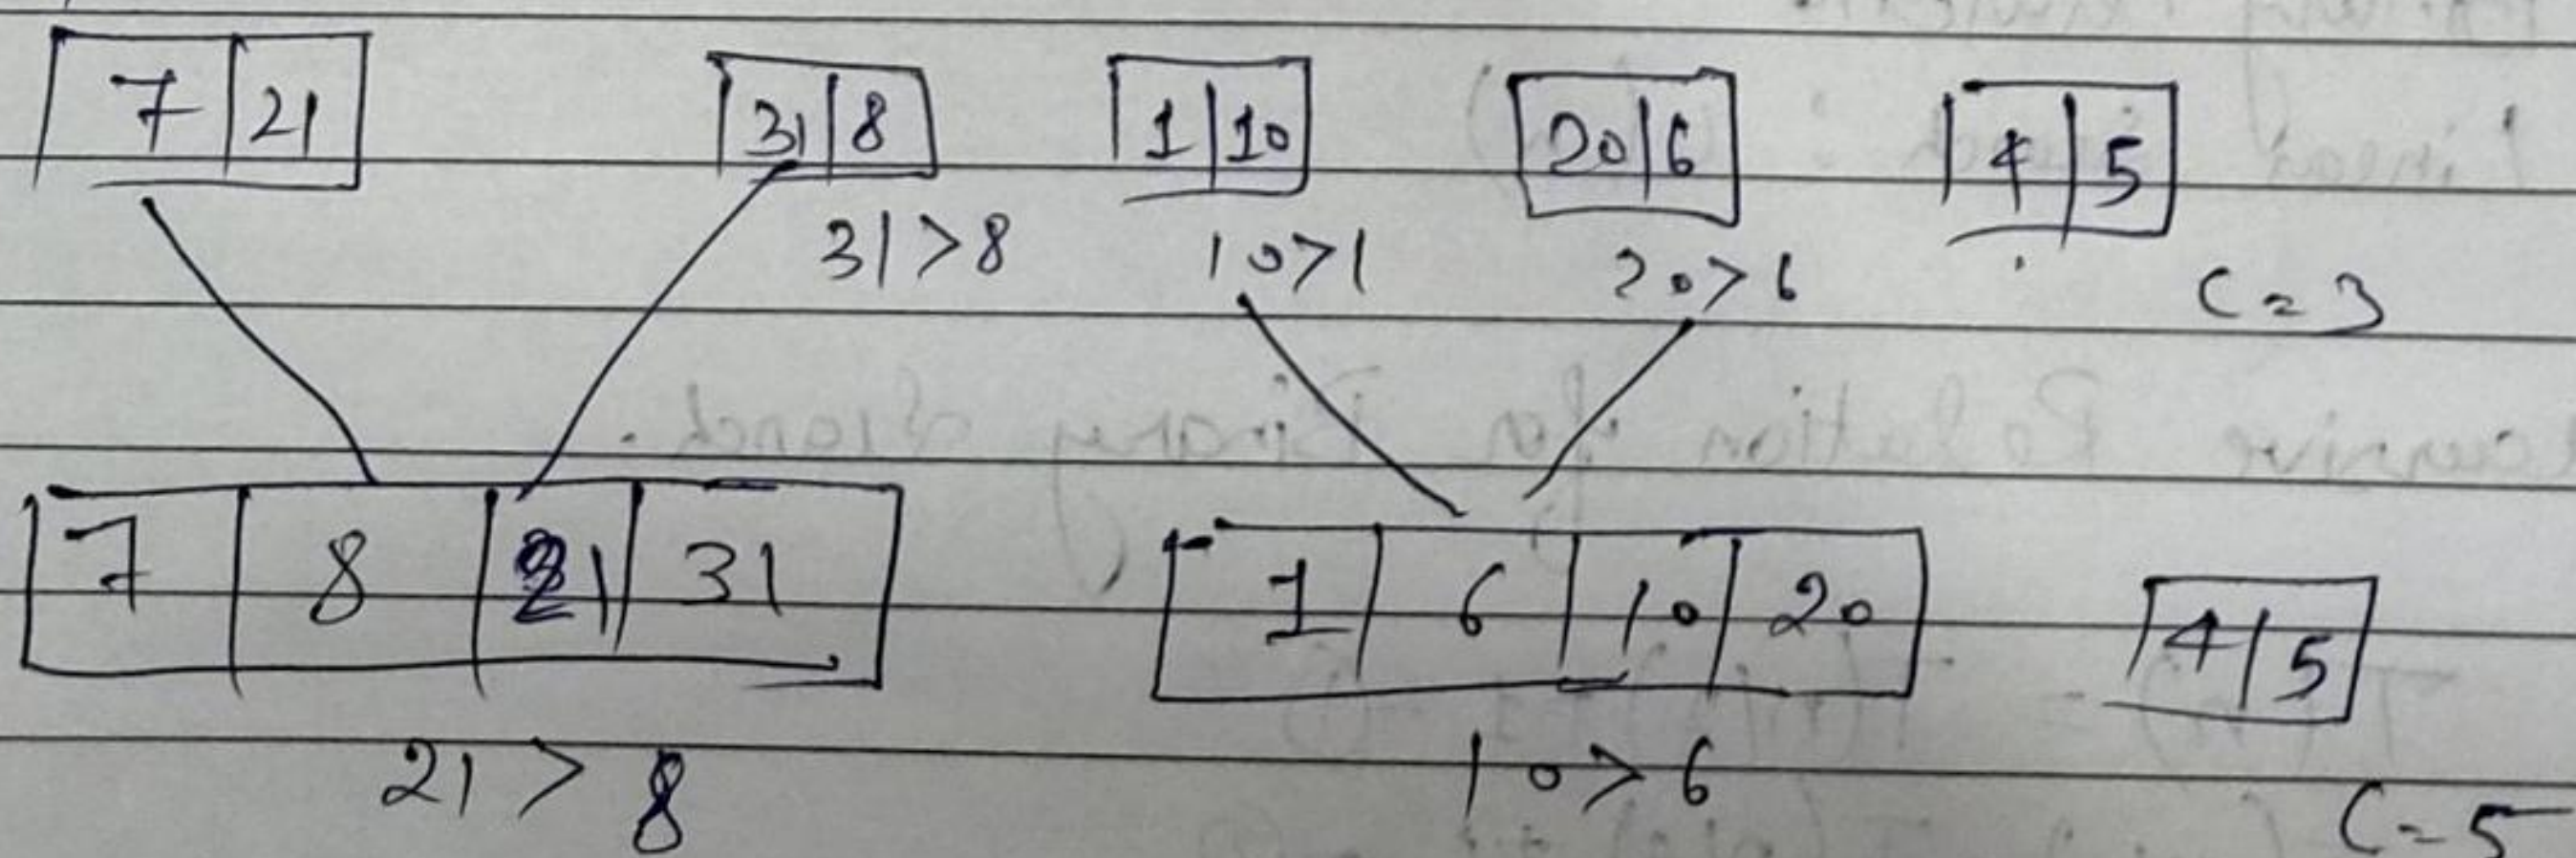 7 21 31 8 1 10 20 6 4 5
31>8 10>1 20>6
C=3
7 8 21 31 1 6 10 20 4 5
21 > 8 10>6
C=5